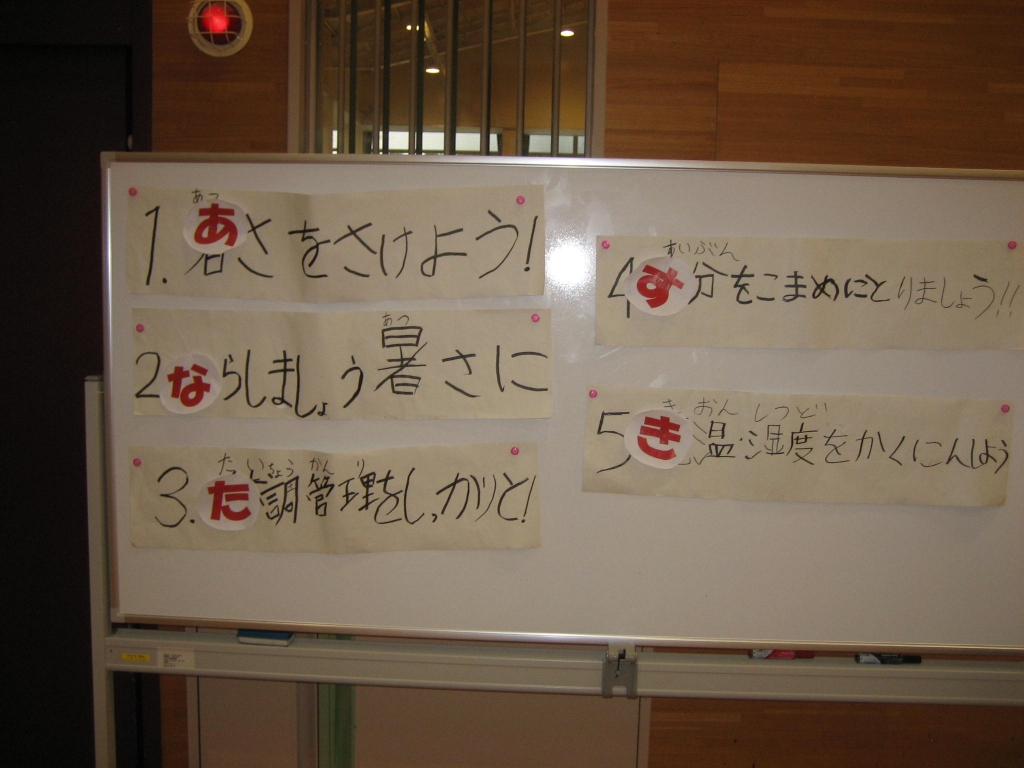 あつ
1. あさをさけよう!
あつ
2 ならしましょう暑さに
たいちょうかんり
3. た調管理をしっかりと!
すいぶん
4 す分をこまめにとりましょう!!
きおん しつど
5 き温・湿度をかくにんしよう